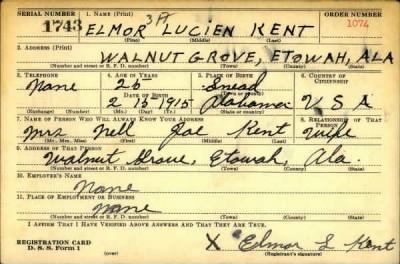 SERIAL NUMBER 1. NAME (Print) ORDER NUMBER
1743 ELMOR LUCIEN KENT 1074
(First) (Middle) (Last)
2. ADDRESS (Print)
WALNUT GROVE, ETOWAH, ALA
(Number and street or R. F. D. number) (Town) (County) (State)
3. TELEPHONE 4. AGE IN YEARS 5. PLACE OF BIRTH 6. COUNTRY OF CITIZENSHIP
None 25 Snead
DATE OF BIRTH (Town or county)
2 15 1915 Alabama U S A
(Exchange) (Number) (Mo.) (Day) (Yr.) (State or country)
7. NAME OF PERSON WHO WILL ALWAYS KNOW YOUR ADDRESS 8. RELATIONSHIP OF THAT PERSON
Mrs Nell Kent Wife
(Mr., Mrs., Miss) (First) (Middle) (Last)
9. ADDRESS OF THAT PERSON
Walnut Grove, Etowah, Ala.
(Number and street or R. F. D. number) (Town) (County) (State)
10. EMPLOYER'S NAME
None
11. PLACE OF EMPLOYMENT OR BUSINESS
None
(Number and street or R. F. D. number) (Town) (County) (State)
I AFFIRM THAT I HAVE VERIFIED ABOVE ANSWERS AND THAT THEY ARE TRUE.
REGISTRATION CARD
D. S. S. Form 1 X Elmor L Kent
(Registrant's signature)